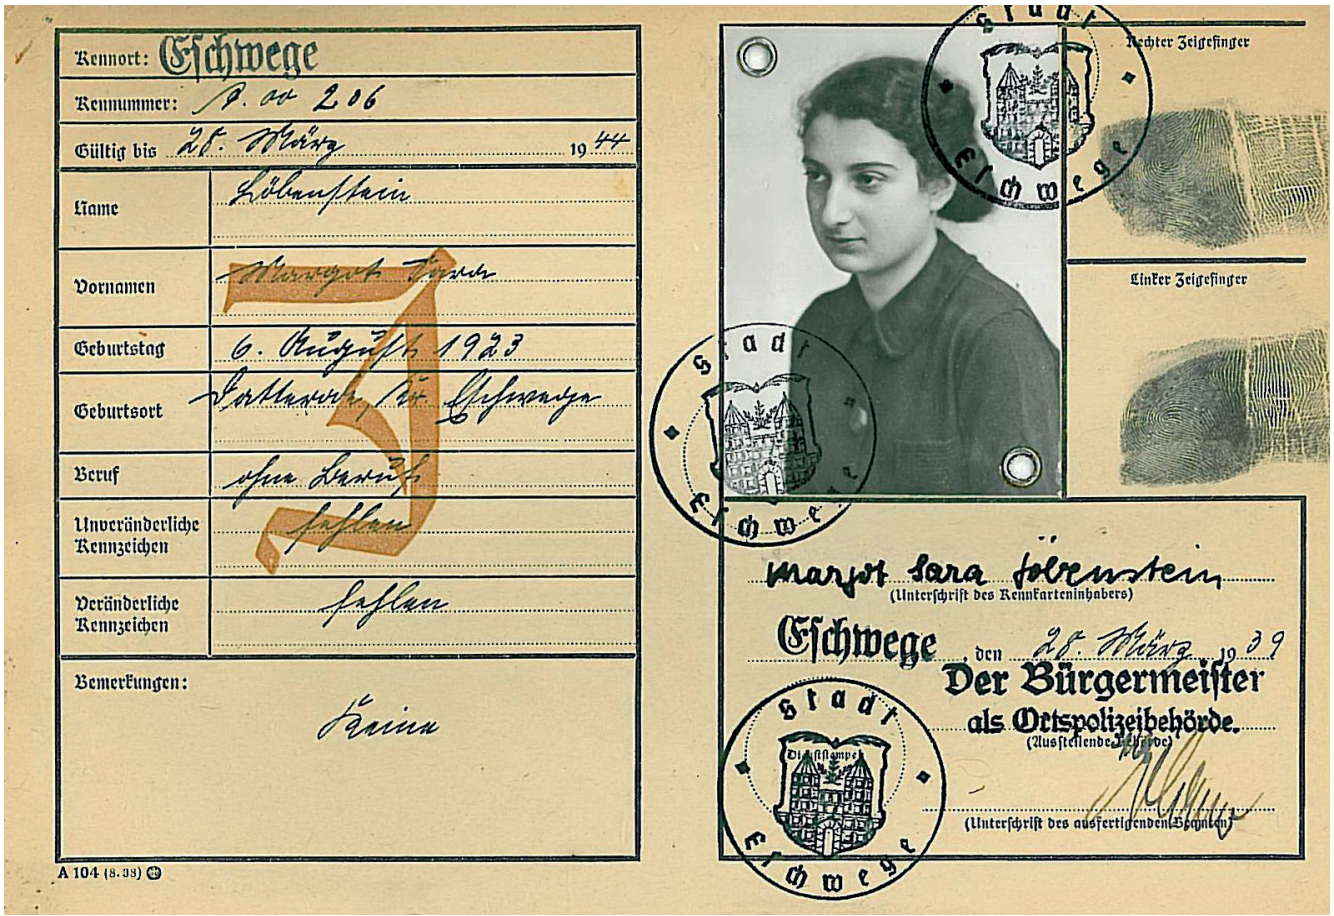 Kennort: Eschwege
Kennummer: A. 00 206
Gültig bis 28. März 1944
Name Löbenstein
Vornamen Margot Sara
Geburtstag 6. August 1923
Geburtsort Datterode, Kr. Eschwege
Beruf ohne Beruf
Unveränderliche Kennzeichen fehlen
Veränderliche Kennzeichen fehlen
Bemerkungen:
Keine
J
A 104 (8.38)
Stadt Eschwege
Rechter Zeigefinger
Linker Zeigefinger
Stadt Eschwege
Margot Sara Löbenstein
(Unterschrift des Kennkarteninhabers)
Eschwege, den 28. März 1939
Der Bürgermeister
als Ortspolizeibehörde.
(Ausstellende Behörde)
Stadt Eschwege
Dienststempel
(Unterschrift des ausfertigenden Beamten)